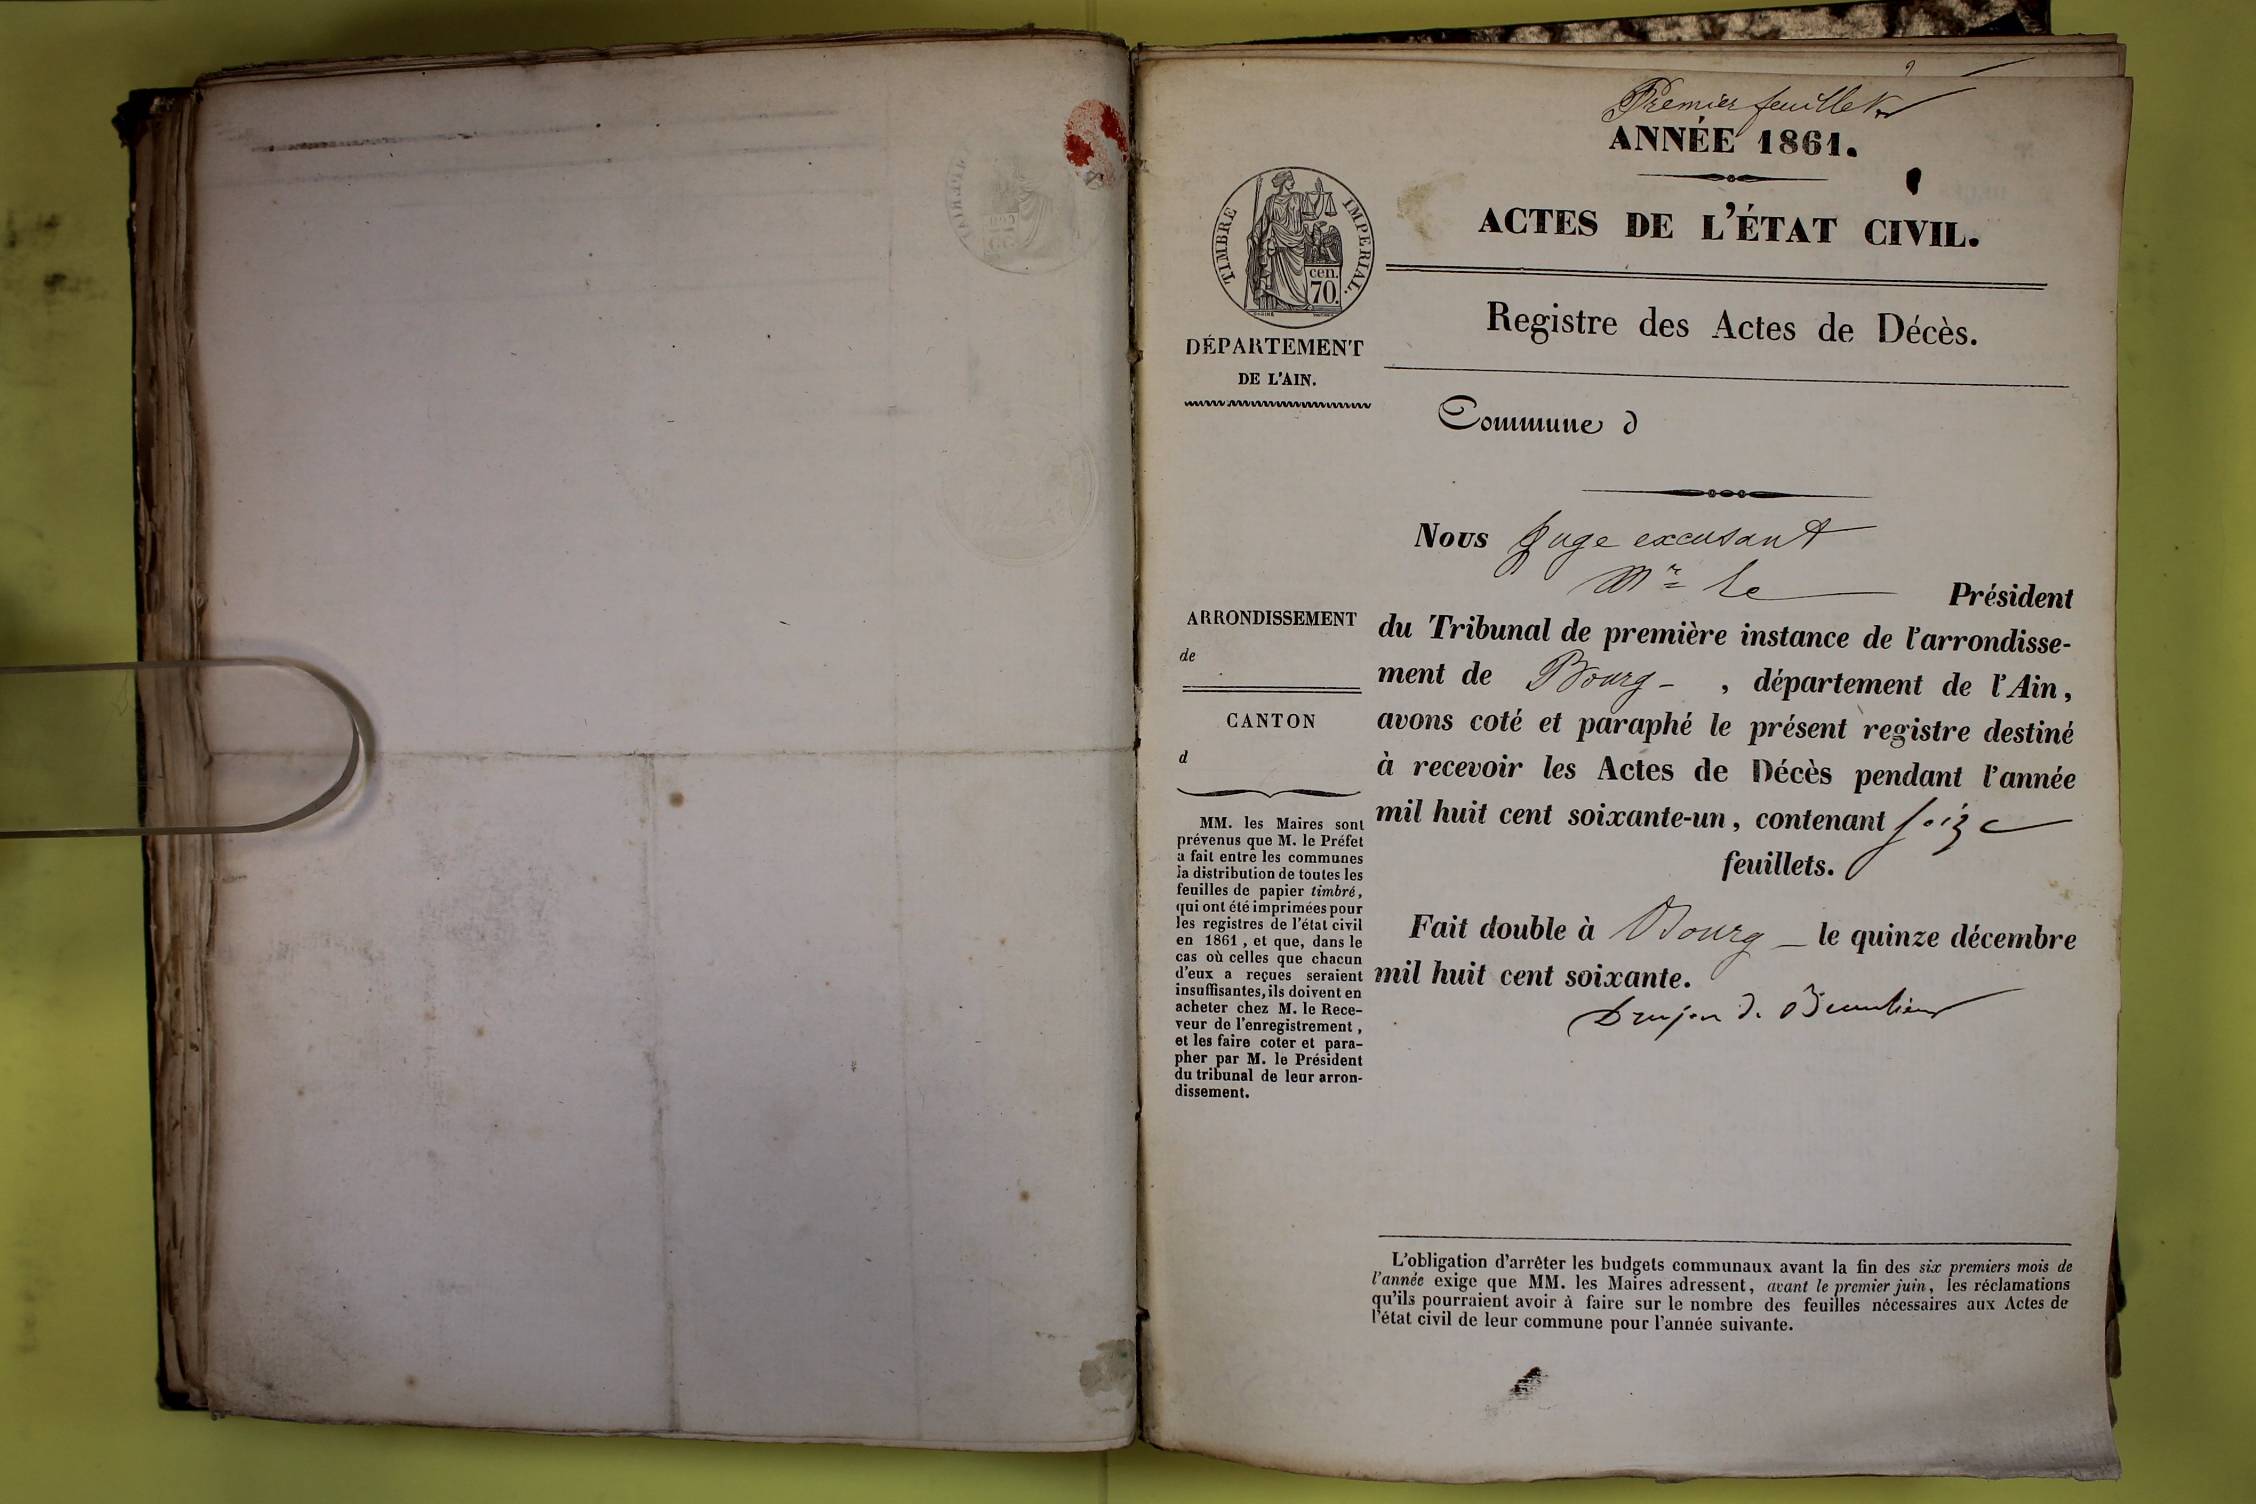 Premier feuillet
ANNÉE 1861.
ACTES DE L'ÉTAT CIVIL.
TIMBRE IMPERIAL.
cen.
70.
DÉPARTEMENT
DE L'AIN.
Registre des Actes de Décès.
Commune d
Nous Juge excusant
Mr le Président
du Tribunal de première instance de l'arrondisse-
ment de Bourg , département de l'Ain,
avons coté et paraphé le présent registre destiné
à recevoir les Actes de Décès pendant l'année
mil huit cent soixante-un, contenant seize
feuillets.
Fait double à Bourg le quinze décembre
mil huit cent soixante.
Drujon de Beaulieu
ARRONDISSEMENT
de
CANTON
d
MM. les Maires sont
prévenus que M. le Préfet
a fait entre les communes
la distribution de toutes les
feuilles de papier timbré,
qui ont été imprimées pour
les registres de l'état civil
en 1861, et que, dans le
cas où celles que chacun
d'eux a reçues seraient
insuffisantes, ils doivent en
acheter chez M. le Rece-
veur de l'enregistrement,
et les faire coter et para-
pher par M. le Président
du tribunal de leur arron-
dissement.
L'obligation d'arrêter les budgets communaux avant la fin des six premiers mois de
l'année exige que MM. les Maires adressent, avant le premier juin, les réclamations
qu'ils pourraient avoir à faire sur le nombre des feuilles nécessaires aux Actes de
l'état civil de leur commune pour l'année suivante.